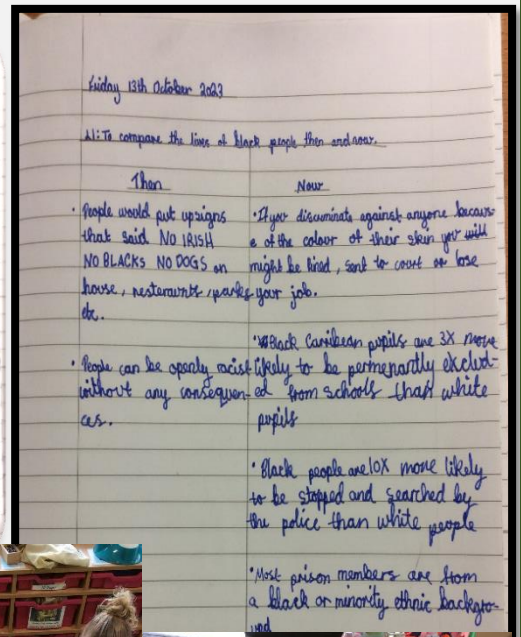 Friday 13th October 2023
LI: To compare the lives of black people then and now.
Then
• People would put up signs
that said NO IRISH
NO BLACKS NO DOGS on
house, resteraunts, parks
etc.
• People can be openly racist
without any consequen-
ces.
Now
• If you discriminate against anyone becaus
e of the colour of their skin you will
might be fined, sent to court or lose
your job.
• Black Carribean pupils are 3X more
likely to be permenantly exclud-
ed from schools than white
pupils
• Black people are 10X more likely
to be stopped and searched by
the police than white people
• Most prison members are from
a black or minority ethnic backgro-
und